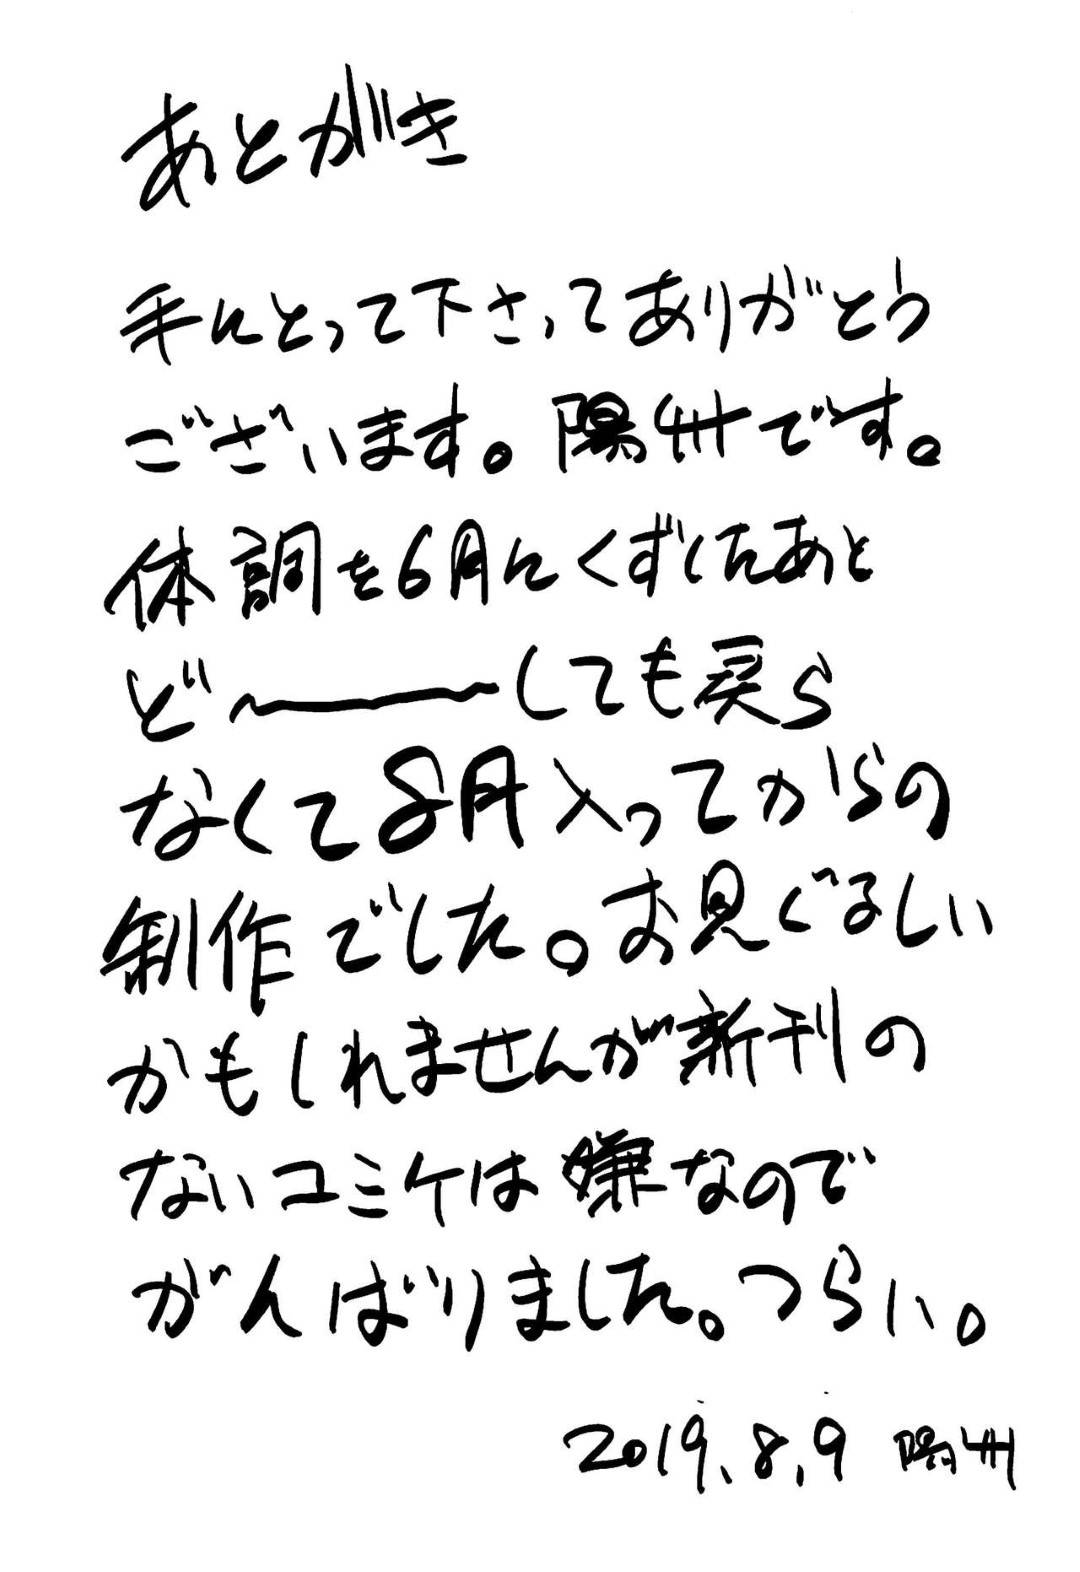 あとがき
手にとって下さってありがとう
ございます。陽州です。
体調を6月にくずしたあと
ど〜――しても戻ら
なくて8月入ってからの
制作でした。お見ぐるしい
かもしれませんが新刊の
ないコミケは嫌なので
がんばりました。つらい。
2019.8.9 陽州